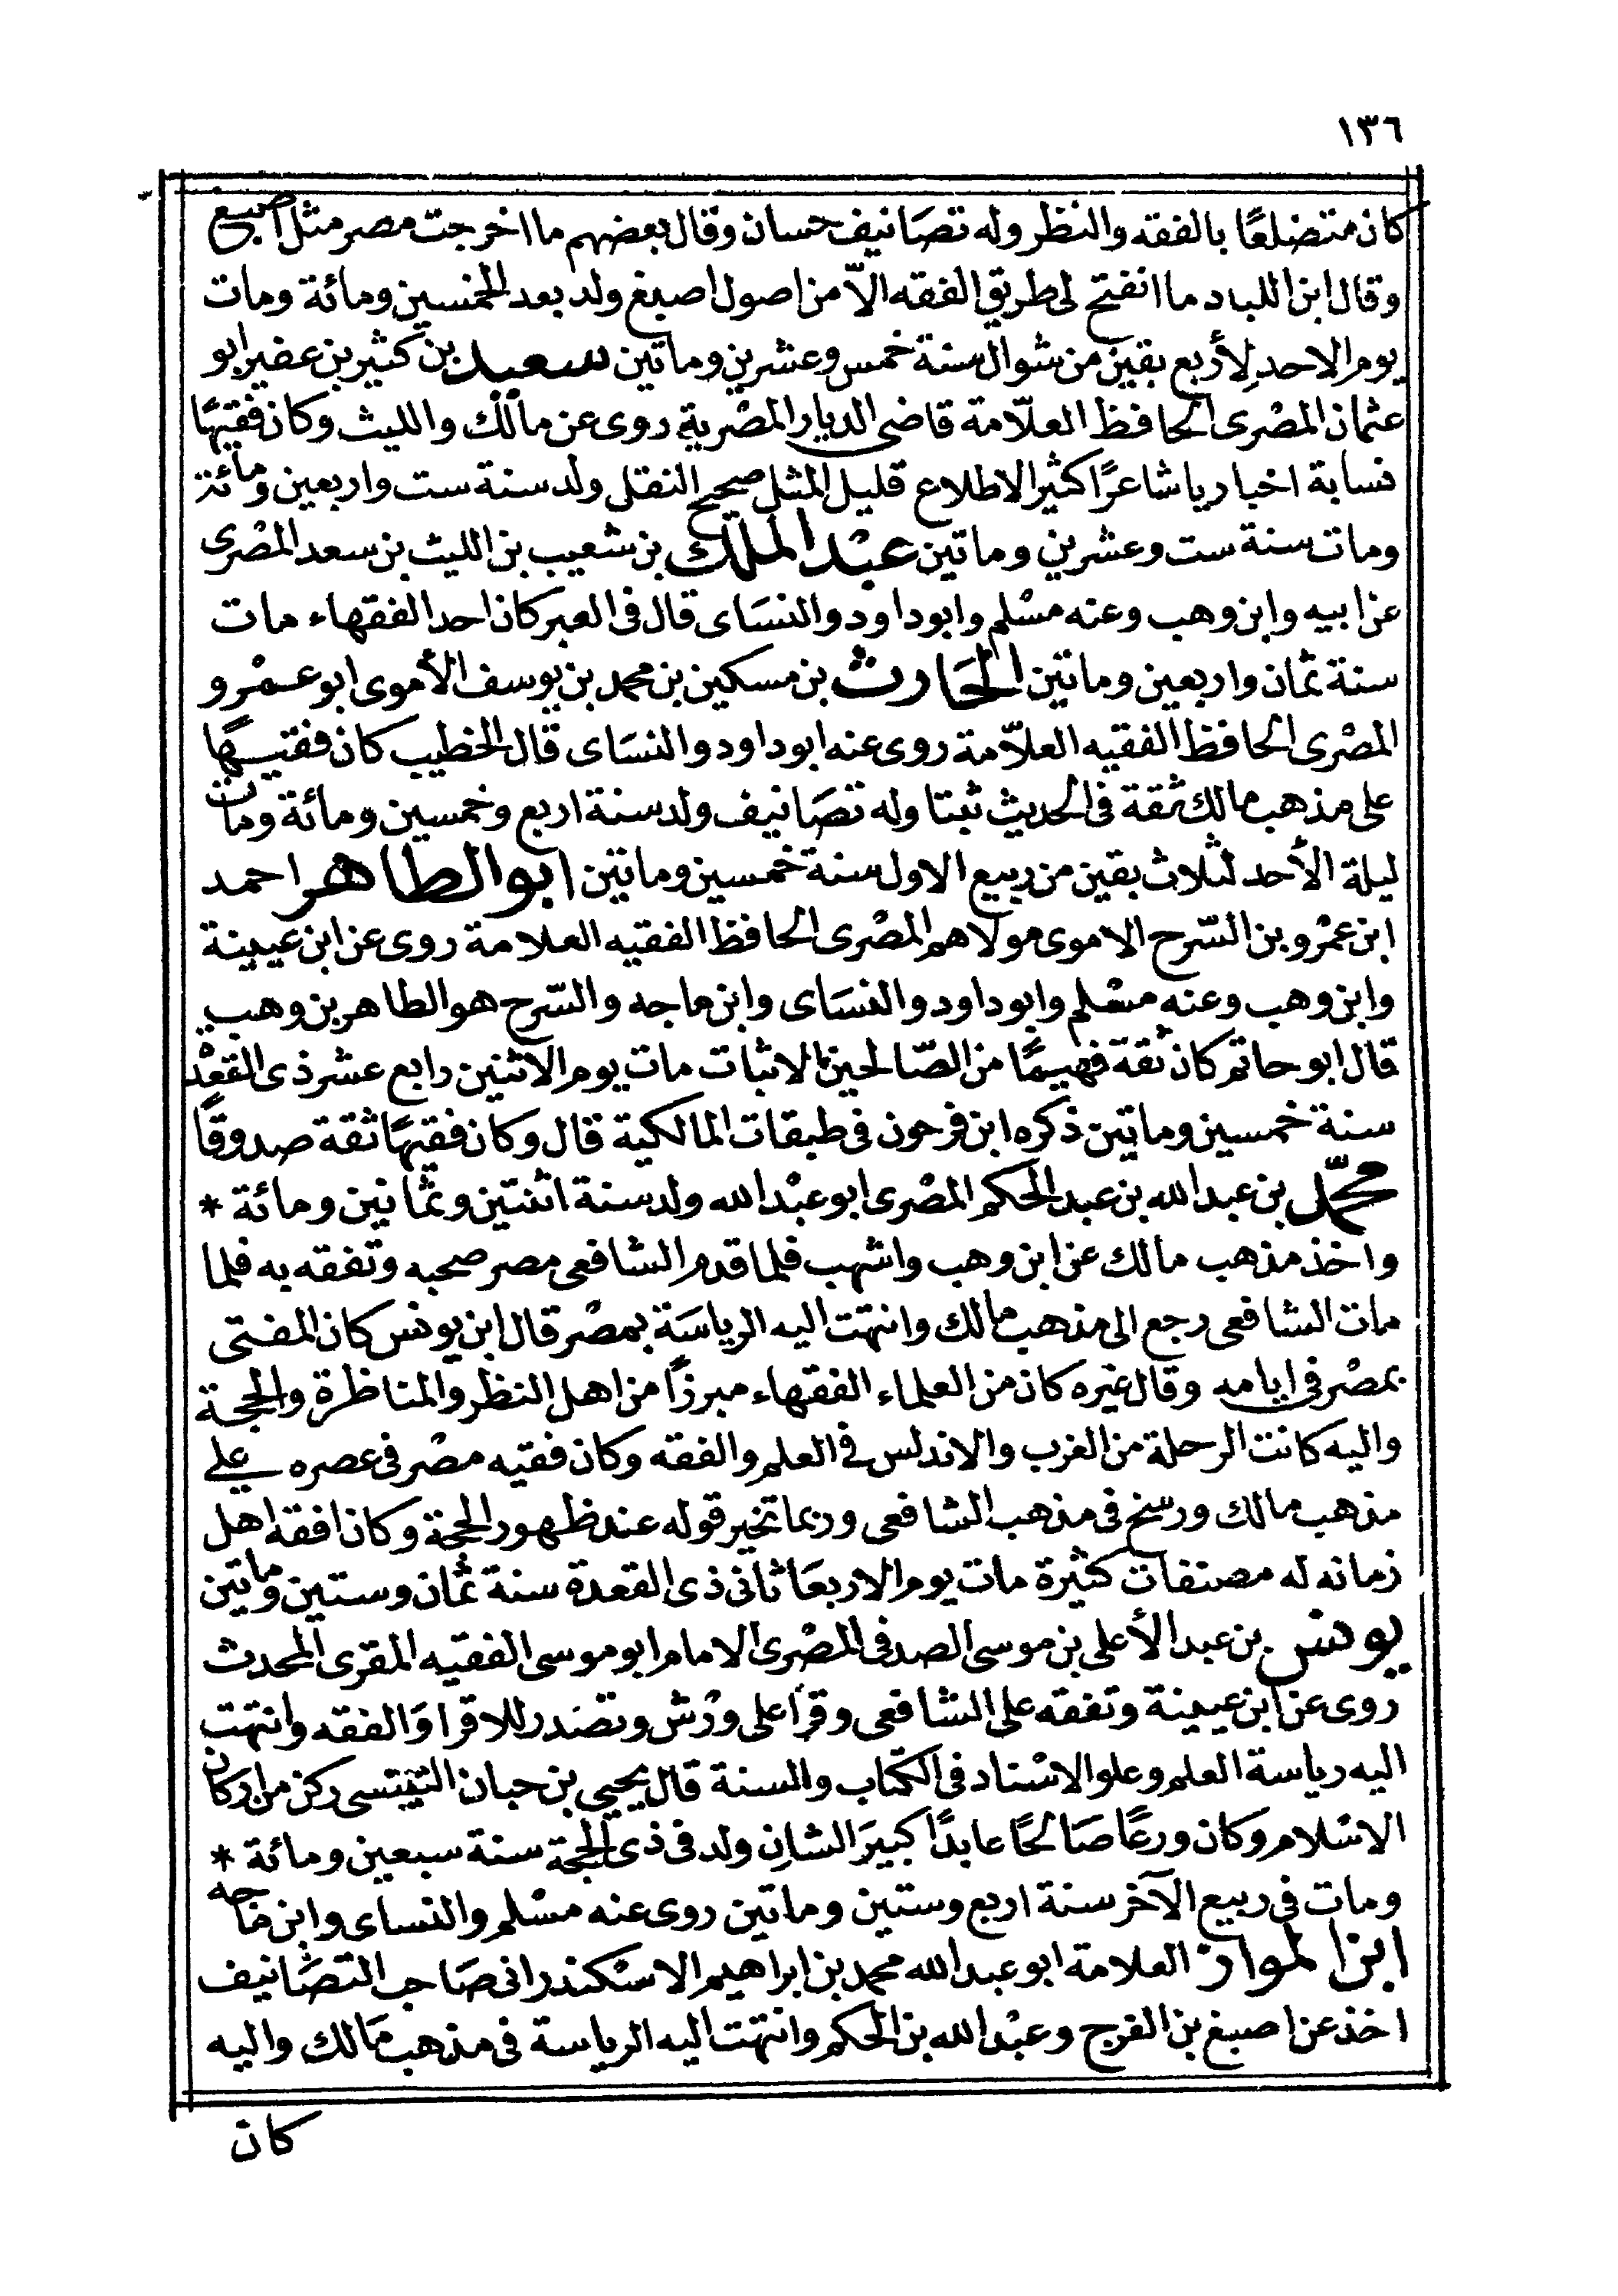 ١٣٦
كان متضلعًا بالفقه والنظر وله تصَانيف حسان وقال بعضهم ما اخرجت مصر مثل اصبغ
وقال ابن اللباد ما انفتح لى طريق الفقه الاّ من اصول اصبغ ولد بعد الخمسين ومائة ومات
يوم الاحد لِأربع بقين من شوال سنة خمس وعشرين وماتين سعيد بن كثير بن عفير ابو
عثمان المصْرى الحافظ العلّامة قاضى الديار المصْرية روى عن مالك والليث وكان فقيهًا
نسابة اخباريا شاعرًا كثير الاطلاع قليل المثل صحيح النقل ولد سنة ست واربعين ومائة
ومات سنة ست وعشرين وماتين عبْد الملك بن شعيب بن الليث بن سعد المصْرى
عن ابيه وابن وهب وعنه مسْلم وابو داود والنسَاى قال فى العبر كان احد الفقهاء مات
سنة ثمان واربعين وماتين الحَارث بن مسكين بن محمد بن يوسف الأموى ابو عمْرو
المصْرى الحافظ الفقيه العلاّمة روى عنه ابو داود والنسَاى قال الخطيب كان فقيهًا
على مذهب مالك ثقة فى الحديث ثبتا وله تصَانيف ولد سنة اربع وخمسين ومائة ومات
ليلة الأحد لثلاث بقين من ربيع الاول سنة خمسين وماتين ابو الطاهر احمد
ابن عمْرو بن السّرح الاموى مولاهم المصْرى الحافظ الفقيه العلامة روى عن ابن عيينة
وابن وهب وعنه مسْلم وابو داود والنسَاى وابن ماجه والسّرح هو الطاهر بن وهب
قال ابو حاتم كان ثقة فهيمًا من الصّالحين الاثبات مات يوم الاثنين رابع عشر ذى القعْد
سنة خمسين وماتين ذكره ابن فرحون فى طبقات المالكية قال وكان فقيهًا ثقة صدوقًا
محمّد بن عبد الله بن عبد الحكم المصْرى ابو عبْد الله ولد سنة اثنتين وثمانين ومائة *
واخذ مذهب مالك عن ابن وهب واشهب فلما قدم الشافعى مصر صحبه وتفقه به فلما
مات الشافعى رجع الى مذهب مالك وانتهت اليه الرياسَة بمصْر قال ابن يونس كان المفتى
بمصْر فى ايامه وقال غيره كان من العلماء الفقهاء مبرزًا من اهل النظر والمناظرة والحجة
واليه كانت الرحلة من الغرب والاندلس فى العلم والفقه وكان فقيه مصْر فى عصره على
مذهب مالك ورسخ فى مذهب الشافعى وربما تخير قوله عند ظهور الحجة وكان افقه اهل
زمانه له مصنفات كثيرة مات يوم الاربعَا ثانى ذى القعدة سنة ثمان وستين وماتين
يونس بن عبد الأعلى بن موسى الصدفى المصْرى الامام ابو موسى الفقيه المقرى المحدث
روى عن ابن عيينة وتفقه على الشافعى وقرأ على ورْش وتصَدر للاقرا وَالفقه وانتهت
اليه رياسة العلم وعلو الاسْناد فى الكتاب والسنة قال يحيى بن حبان التنيسى ركن من اركان
الاسْلام وكان ورعًا صَالحًا عابدًا كبيرَ الشانِ ولد فى ذى الحجة سنة سبعين ومائة *
ومات فى ربيع الآخر سنة اربع وستين وماتين روى عنه مسْلم والنساى وابن ماجه
ابن المواز العلامة ابو عبد الله محمد بن ابراهيم الاسْكندرانى صَاحب التصَانيف
اخذ عن اصبغ بن الفرج وعبْد الله بن الحكم وانتهت اليه الرياسة فى مذهب مَالك واليه
كان